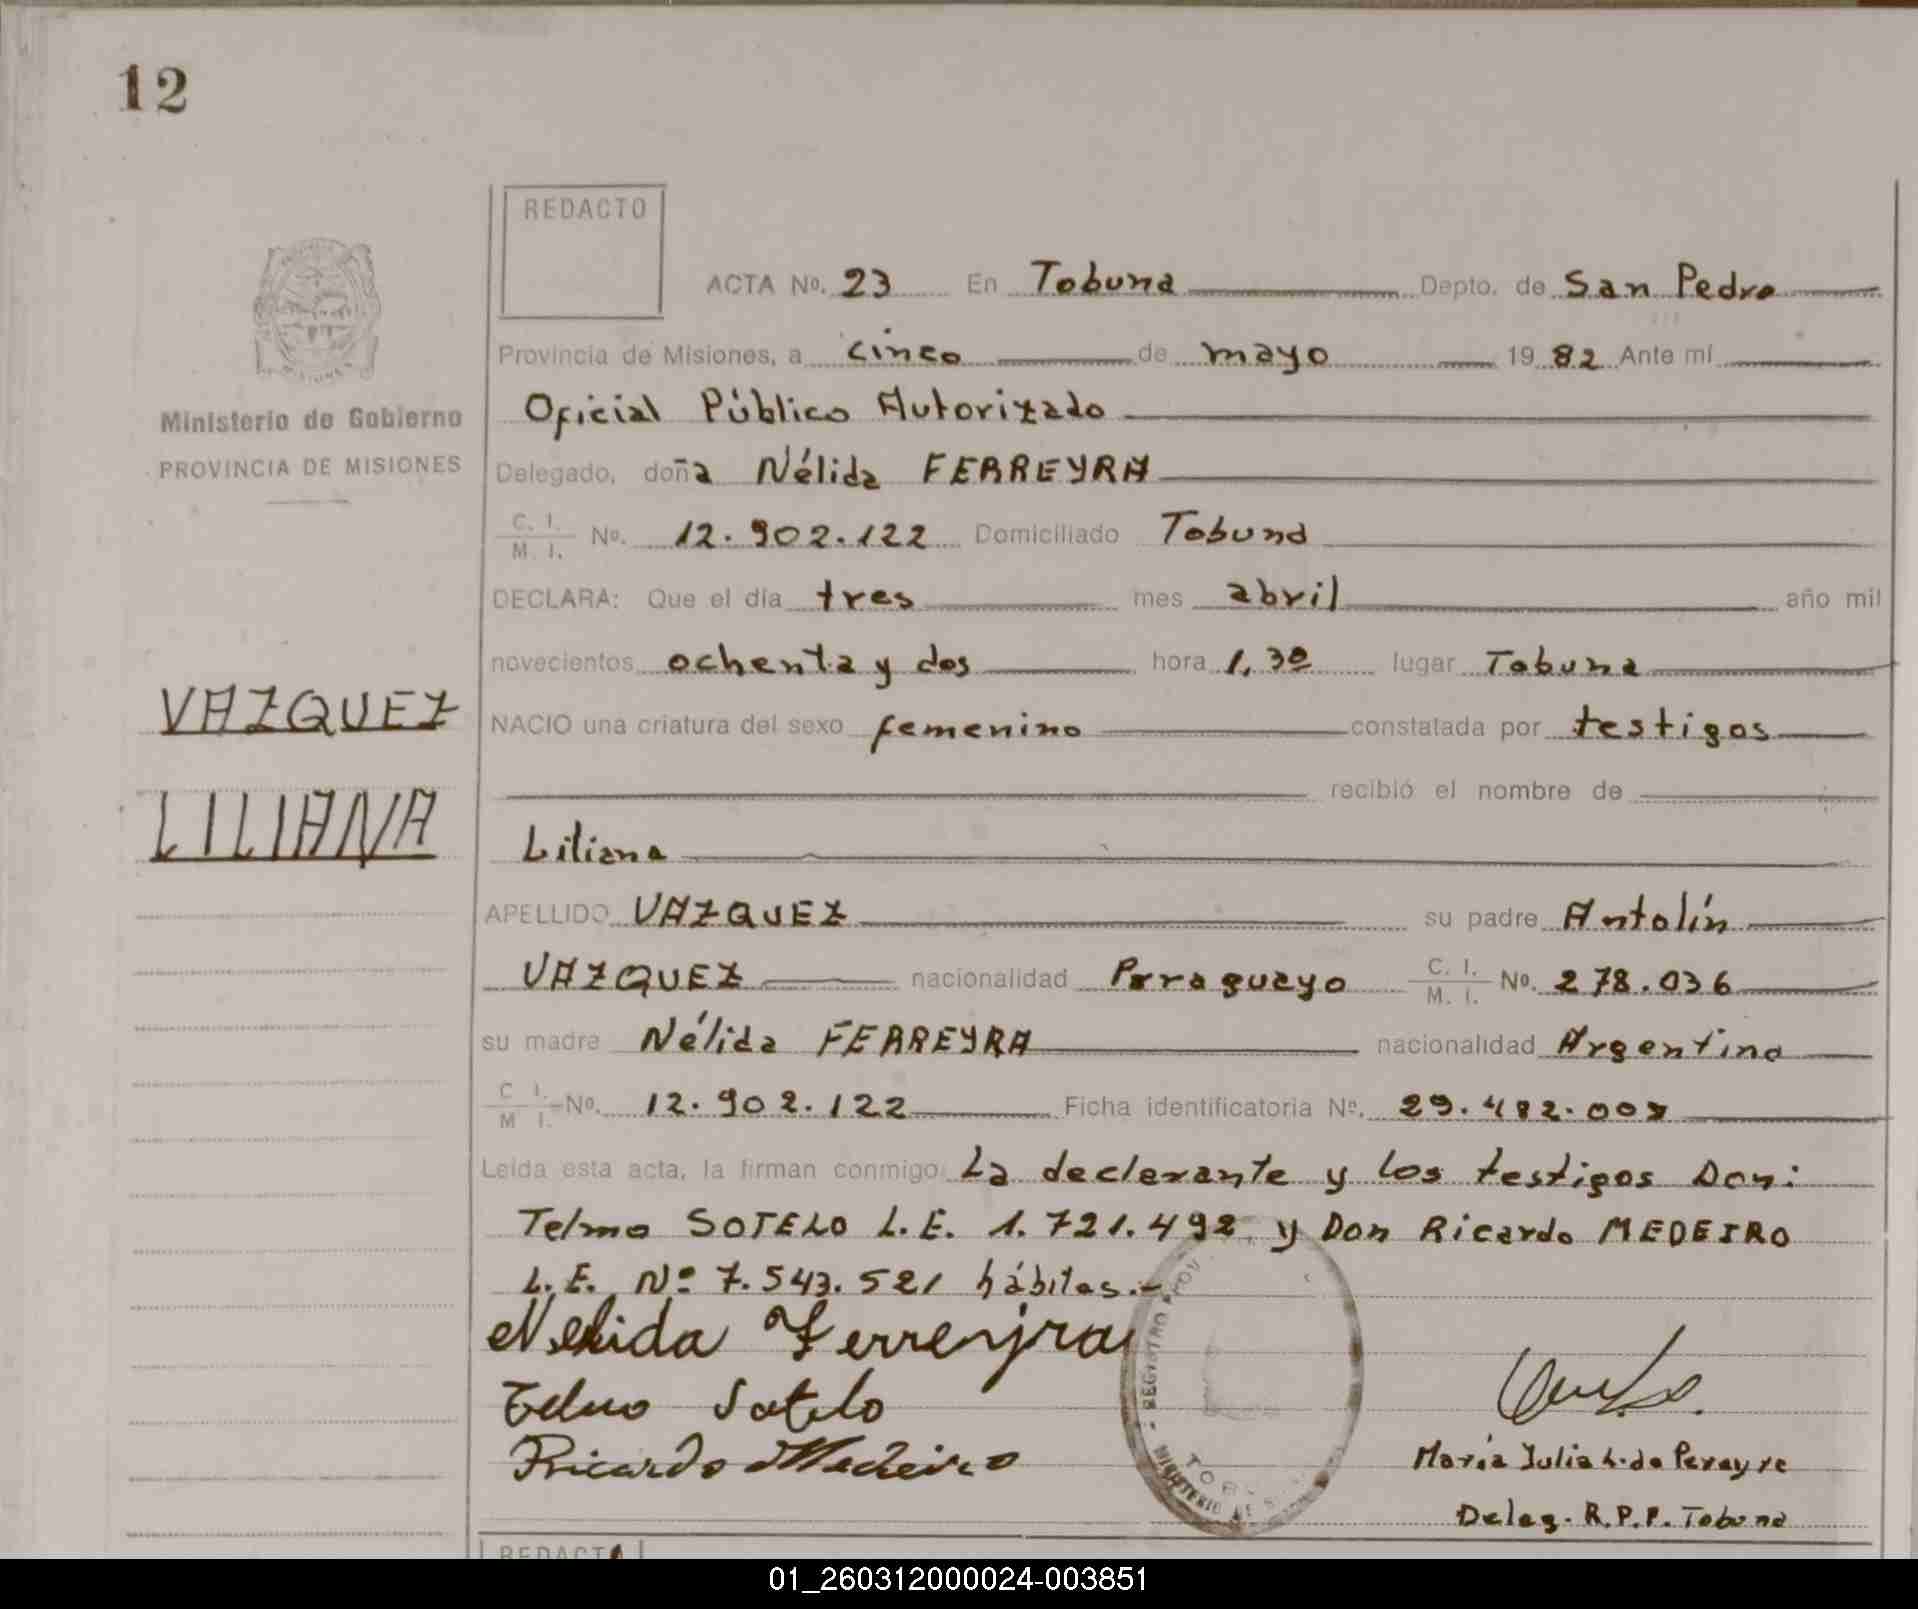 12
REDACTO
ACTA Nº. 23 En Tobuna Depto. de San Pedro
Provincia de Misiones, a cinco de mayo 19 82 Ante mí
Ministerio de Gobierno
PROVINCIA DE MISIONES
Oficial Público Autorizado
Delegado, doña Nélida FERREYRA
C. I. / M. I. No. 12.902.122 Domiciliado Tobuna
DECLARA: Que el día tres mes abril año mil
novecientos ochenta y dos hora 1,30 lugar Tobuna
VAZQUEZ
NACIO una criatura del sexo femenino constatada por testigos
recibió el nombre de
LILIANA
Liliana
APELLIDO VAZQUEZ su padre Antolín
VAZQUEZ nacionalidad Paraguayo C. I. / M. I. Nº. 278.036
su madre Nélida FERREYRA nacionalidad Argentina
C I. / M I. Nº. 12.902.122 Ficha identificatoria Nº. 29.482.00
Leída esta acta, la firman conmigo La declarante y los testigos Don:
Telmo SOTELO L.E. 1.721.492 y Don Ricardo MEDEIRO
L.E. Nº 7.543.521 hábiles.-
Nelida Ferreyra
Telmo Sotelo
Ricardo Medeiro
REGISTRO PROV
TOB
MINISTERIO DE
María Julia L. de Pereyra
Deleg. R.P.P. Tobuna
REDACTO
01_260312000024-003851